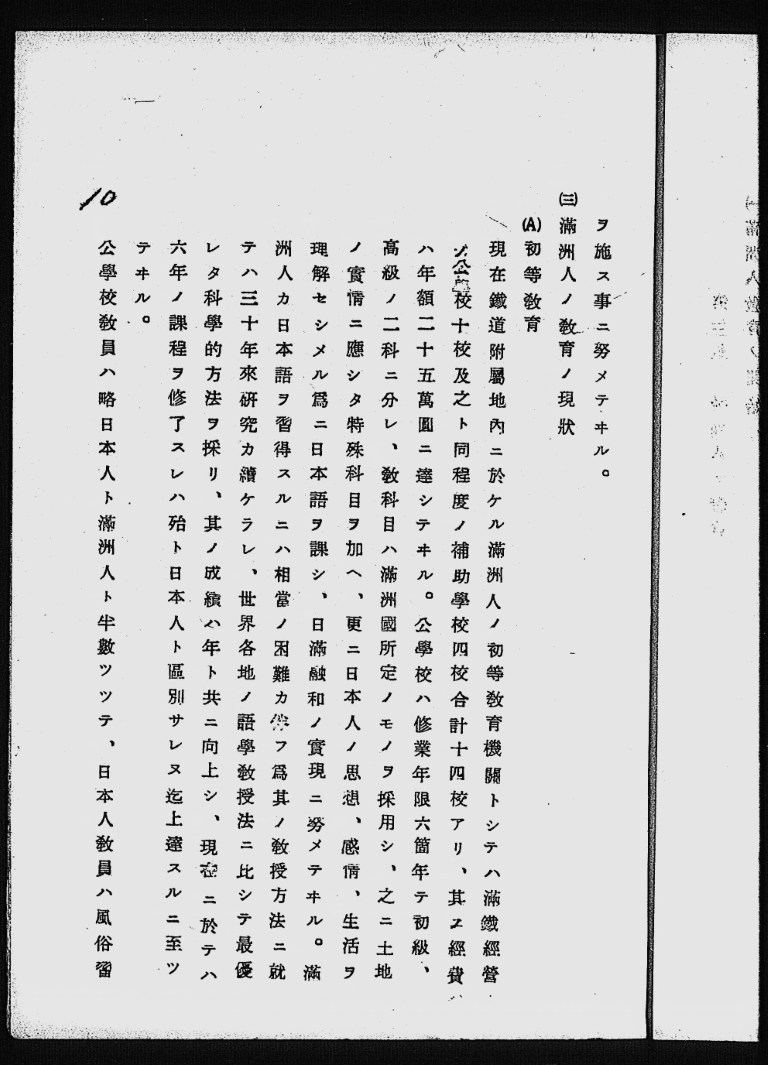 ヲ施ス事ニ努メテヰル。
㈢滿洲人ノ敎育ノ現狀
(A)初等敎育
現在鐵道附屬地內ニ於ケル滿洲人ノ初等敎育機關トシテハ滿鐵經營
ノ公學校十校及之ト同程度ノ補助學校四校合計十四校アリ、其ノ經費
ハ年額二十五萬圓ニ達シテヰル。公學校ハ修業年限六箇年テ初級、
高級ノ二科ニ分レ、敎科目ハ滿洲國所定ノモノヲ採用シ、之ニ土地
ノ實情ニ應シタ特殊科目ヲ加ヘ、更ニ日本人ノ思想、感情、生活ヲ
理解セシメル爲ニ日本語ヲ課シ、日滿融和ノ實現ニ努メテヰル。滿
洲人カ日本語ヲ習得スルニハ相當ノ困難カ伴フ爲其ノ敎授方法ニ就
テハ三十年來硏究カ續ケラレ、世界各地ノ語學敎授法ニ比シテ最優
レタ科學的方法ヲ採リ、其ノ成績ハ年ト共ニ向上シ、現在ニ於テハ
六年ノ課程ヲ修了スレハ殆ト日本人ト區別サレヌ迄上達スルニ至ツ
テヰル。
公學校敎員ハ略日本人ト滿洲人ト半數ツツテ、日本人敎員ハ風俗習
10